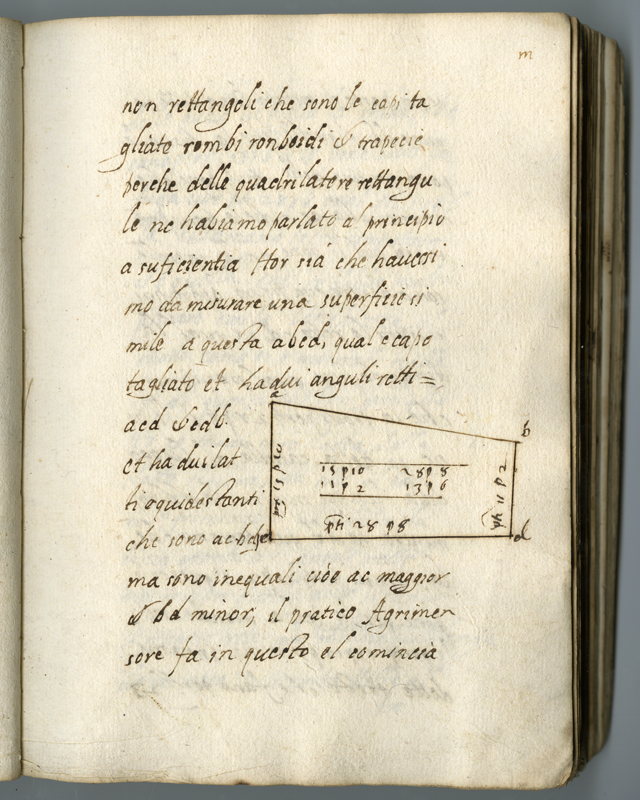 m
non rettangoli che sono le capi ta
gliate rombi ronboidi & trapecie
perche delle quadrilatere rettangu
le ne habiamo parlato al principio
a suficientia Hor sia che haveri
mo da misurare una superficie si
mile a questa abcd, qual e capo
tagliato et ha dui anguli retti=
acd & cdb.
et ha dui lat
ti equidestanti
che sono ac bd
ma sono inequali cioe ac maggior
& bd minor, il pratico Agrimen
sore fa in questo el comincia
a
b
d
13 p 10
13 p 10 28 p 8
11 p 2 13 p 6
pti 28 p 8
11 p 2